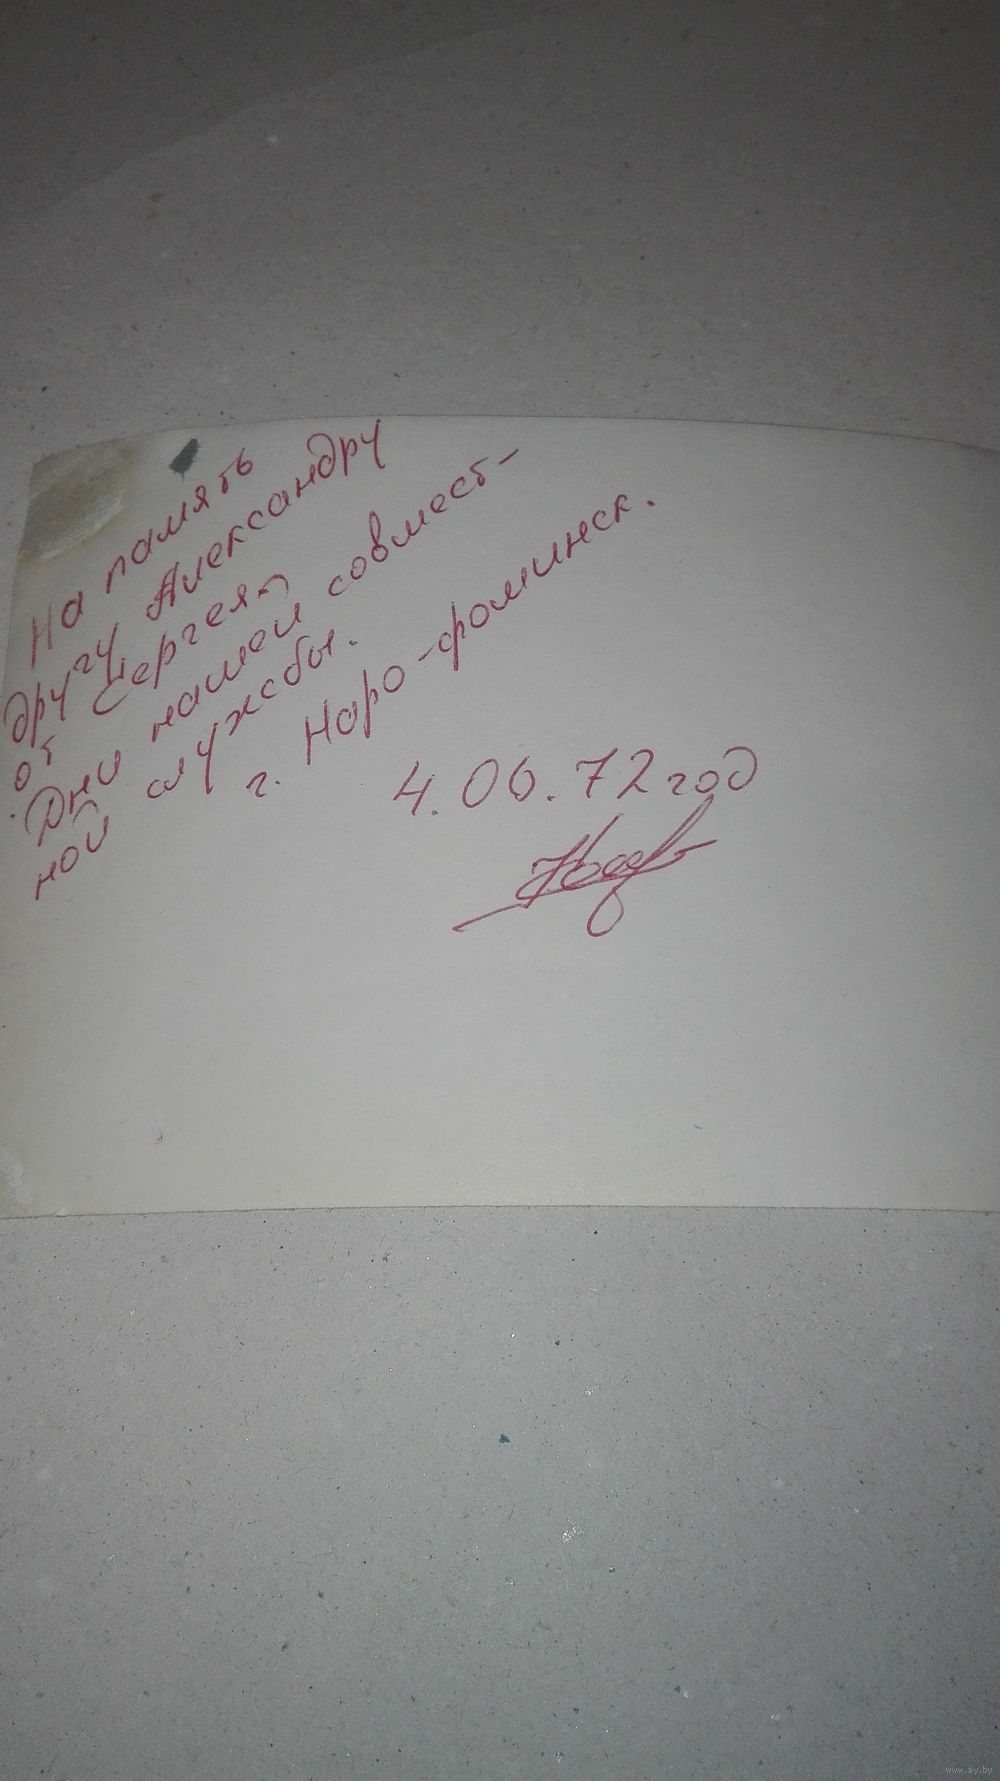 На память
другу Александру
от Сергея.
Дни нашей совмест-
ной службы.
г. Наро-фоминск.
4.06.72 год
www.ay.by